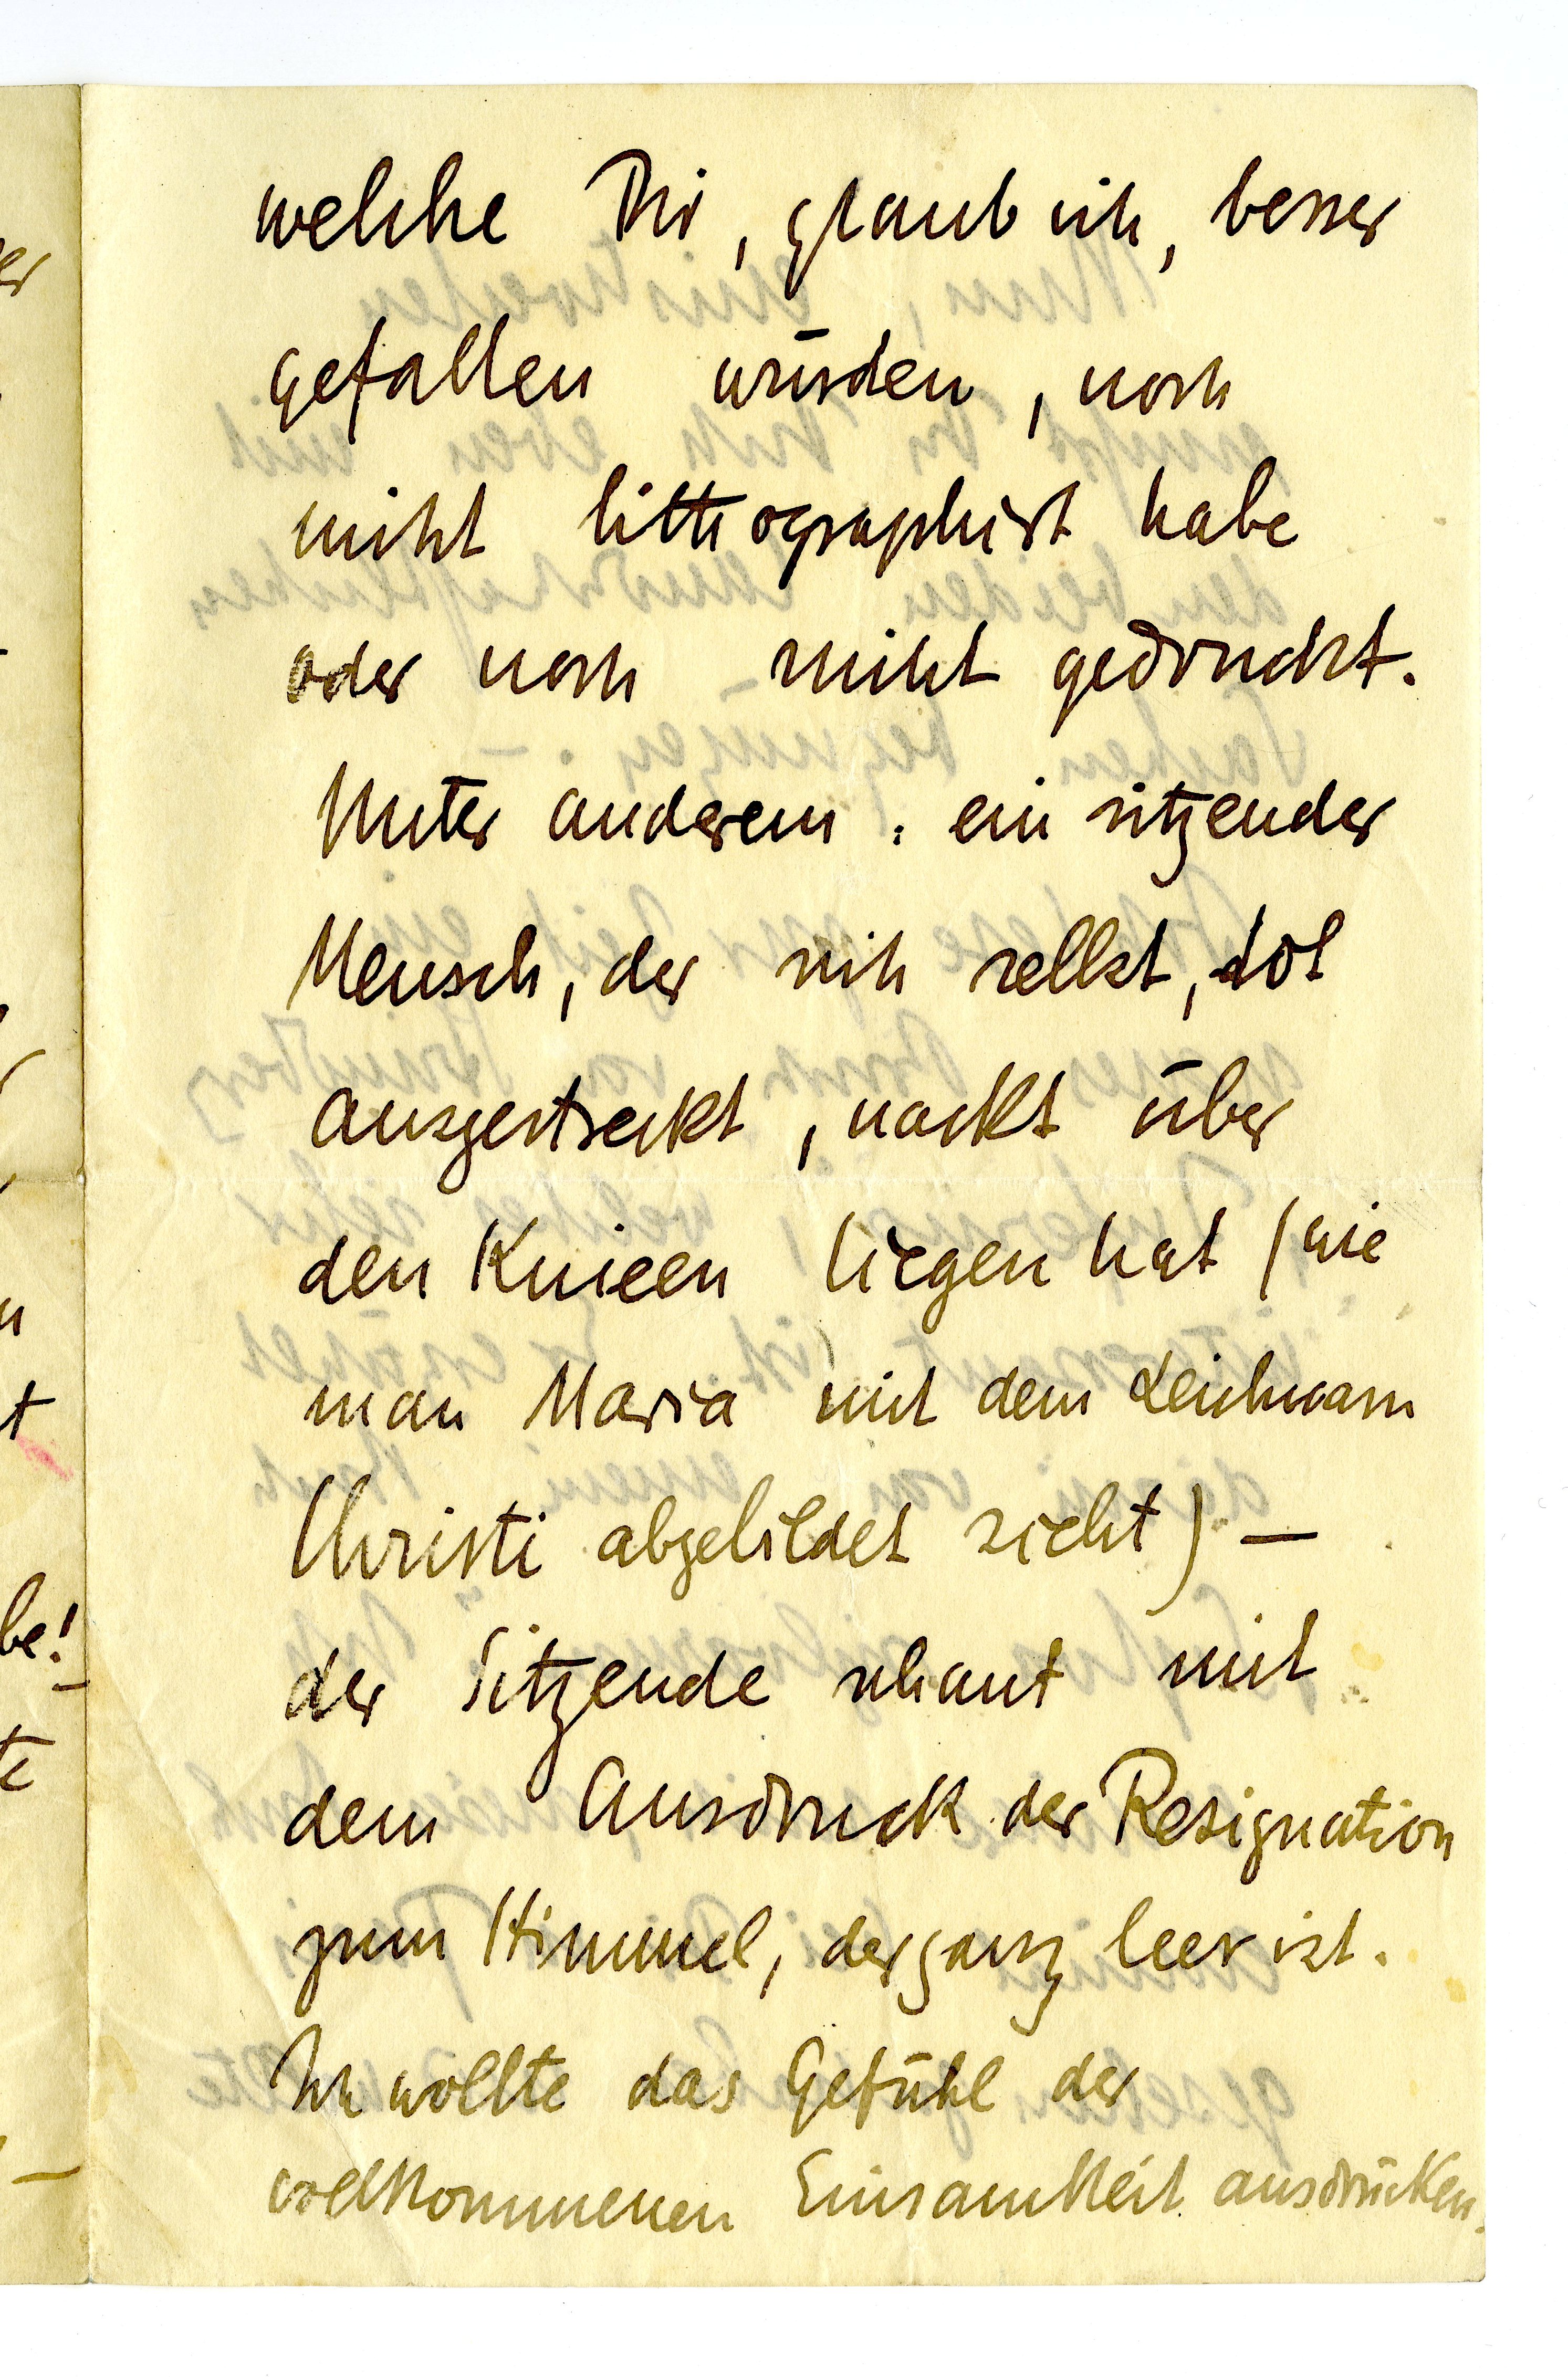 welche Dir, glaub ich, besser
gefallen würden, noch
nicht litthographiert habe
oder noch nicht gedruckt.
Unter anderem: ein sitzender
Mensch, der sich selbst, tot
ausgestreckt, nackt über
den Knieen liegen hat (wie
man Maria mit dem Leichnam
Christi abgebildet sieht) —
der Sitzende schaut mit
dem Ausdruck der Resignation
zum Himmel, der ganz leer ist.
Ich wollte das Gefühl der
vollkommenen Einsamkeit ausdrücken.